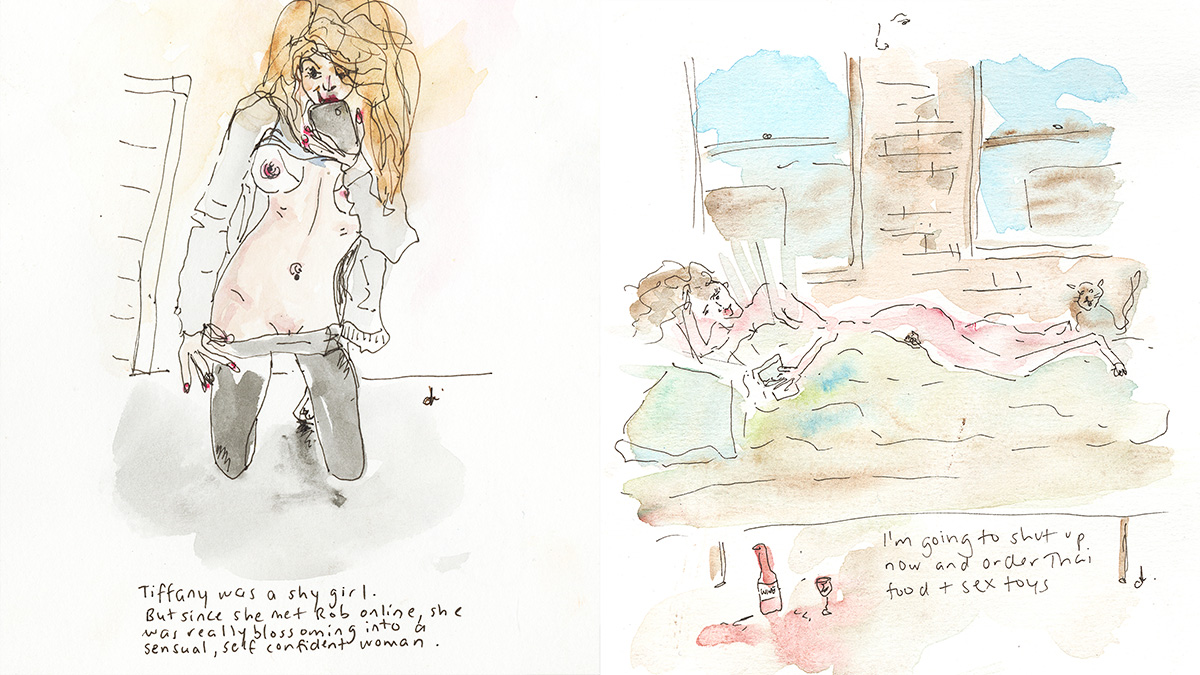 Tiffany was a shy girl.
But since she met Rob online, she
was really blossoming into a
sensual, self confident woman.
I'm going to shut up
now and order Thai
food + sex toys